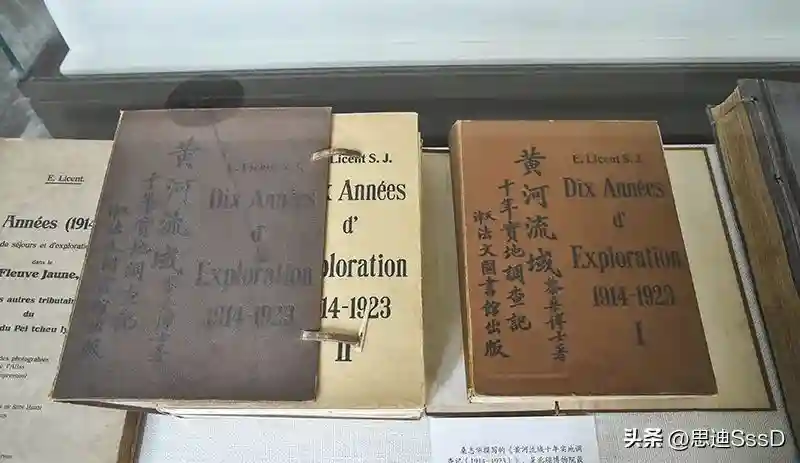 E. Licent.
Années (1914
de séjours et d'exploration
dans le
Fleuve Jaune,
es autres tributai
du
du Pei tcheu ly
黄河流域
十年實地調查記
法文圖書館出版
E. Licent S. J.
Dix Années
d'
Exploration
1914-1923
Licent S. J.
x Années
d'
ploration
14-1923
II
黄河流域
黎桑博士著
十年實地調查記
法文圖書館出版
E. Licent S. J.
Dix Années
d'
Exploration
1914-1923
I
桑志华撰写的《黄河流域十年实地调
查记（1914-1923）》
头条 @思迪SssD